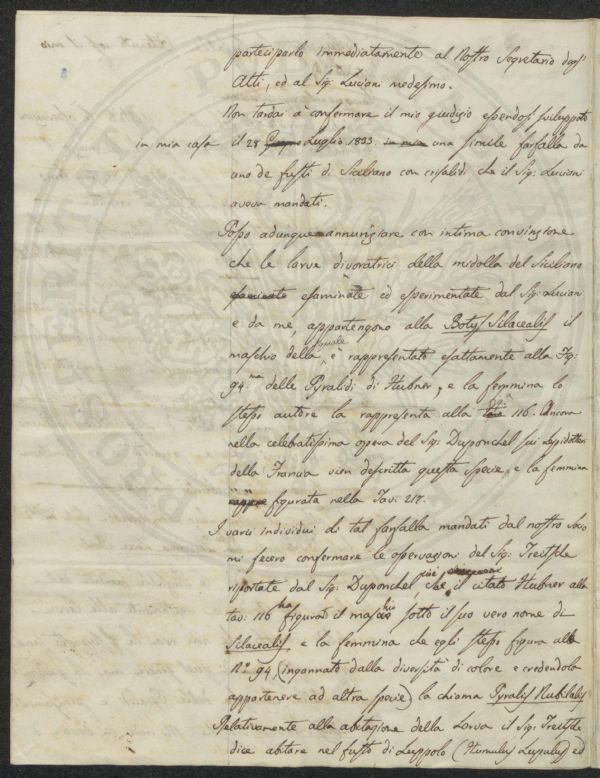 parteciparlo immediatamente al Nostro Segretario degl'
Atti, ed al Sig: Lucioni medesimo.
Non tardai à confermare il mio giudizio essendosi sviluppato
in mia casa il 28 Giugno Luglio 1833. in mia una simile farfalla da
uno de fusti di Siciliano con crisalidi che il Sig: Lucioni
aveva mandati.
Posso adunque annunziare con intima convinzione
che le larve divoratrici della midolla del Siciliano
esaminate esaminate ed esperimentate dal Sig: Lucioni
e da me, appartengono alla Botys Silacealis il
maschio della quale è rappresentato esattamente alla Fig:
94.ma delle Pyralidi di Hubner, e la femmina lo
stesso autore la rappresenta alla 116. Ancora
nella celebratissima opera del Sig: Duponchel sui Lepidotteri
della Francia vien descritta questa specie, e la femmina
figurata nella Tav: 217.
I varii individui di tal farfalla mandati dal nostro Socio
mi fecero confermare le osservazioni del Sig: Treitschke
riportate dal Sig: Duponchel, cioè, che il citato Hubner alla
tav: 116 ha figurato il maschio sotto il suo vero nome di
Silacealis e la femmina che egli stesso figura alla
N.o 94 (ingannato dalla diversità di colore e credendola
appartenere ad altra specie) la chiama Pyralis Nubilalis
Relativamente alla abitazione della Larva il Sig: Treitschke
dice abitare nel fusto di Luppolo (Humulus Lupulus) ed